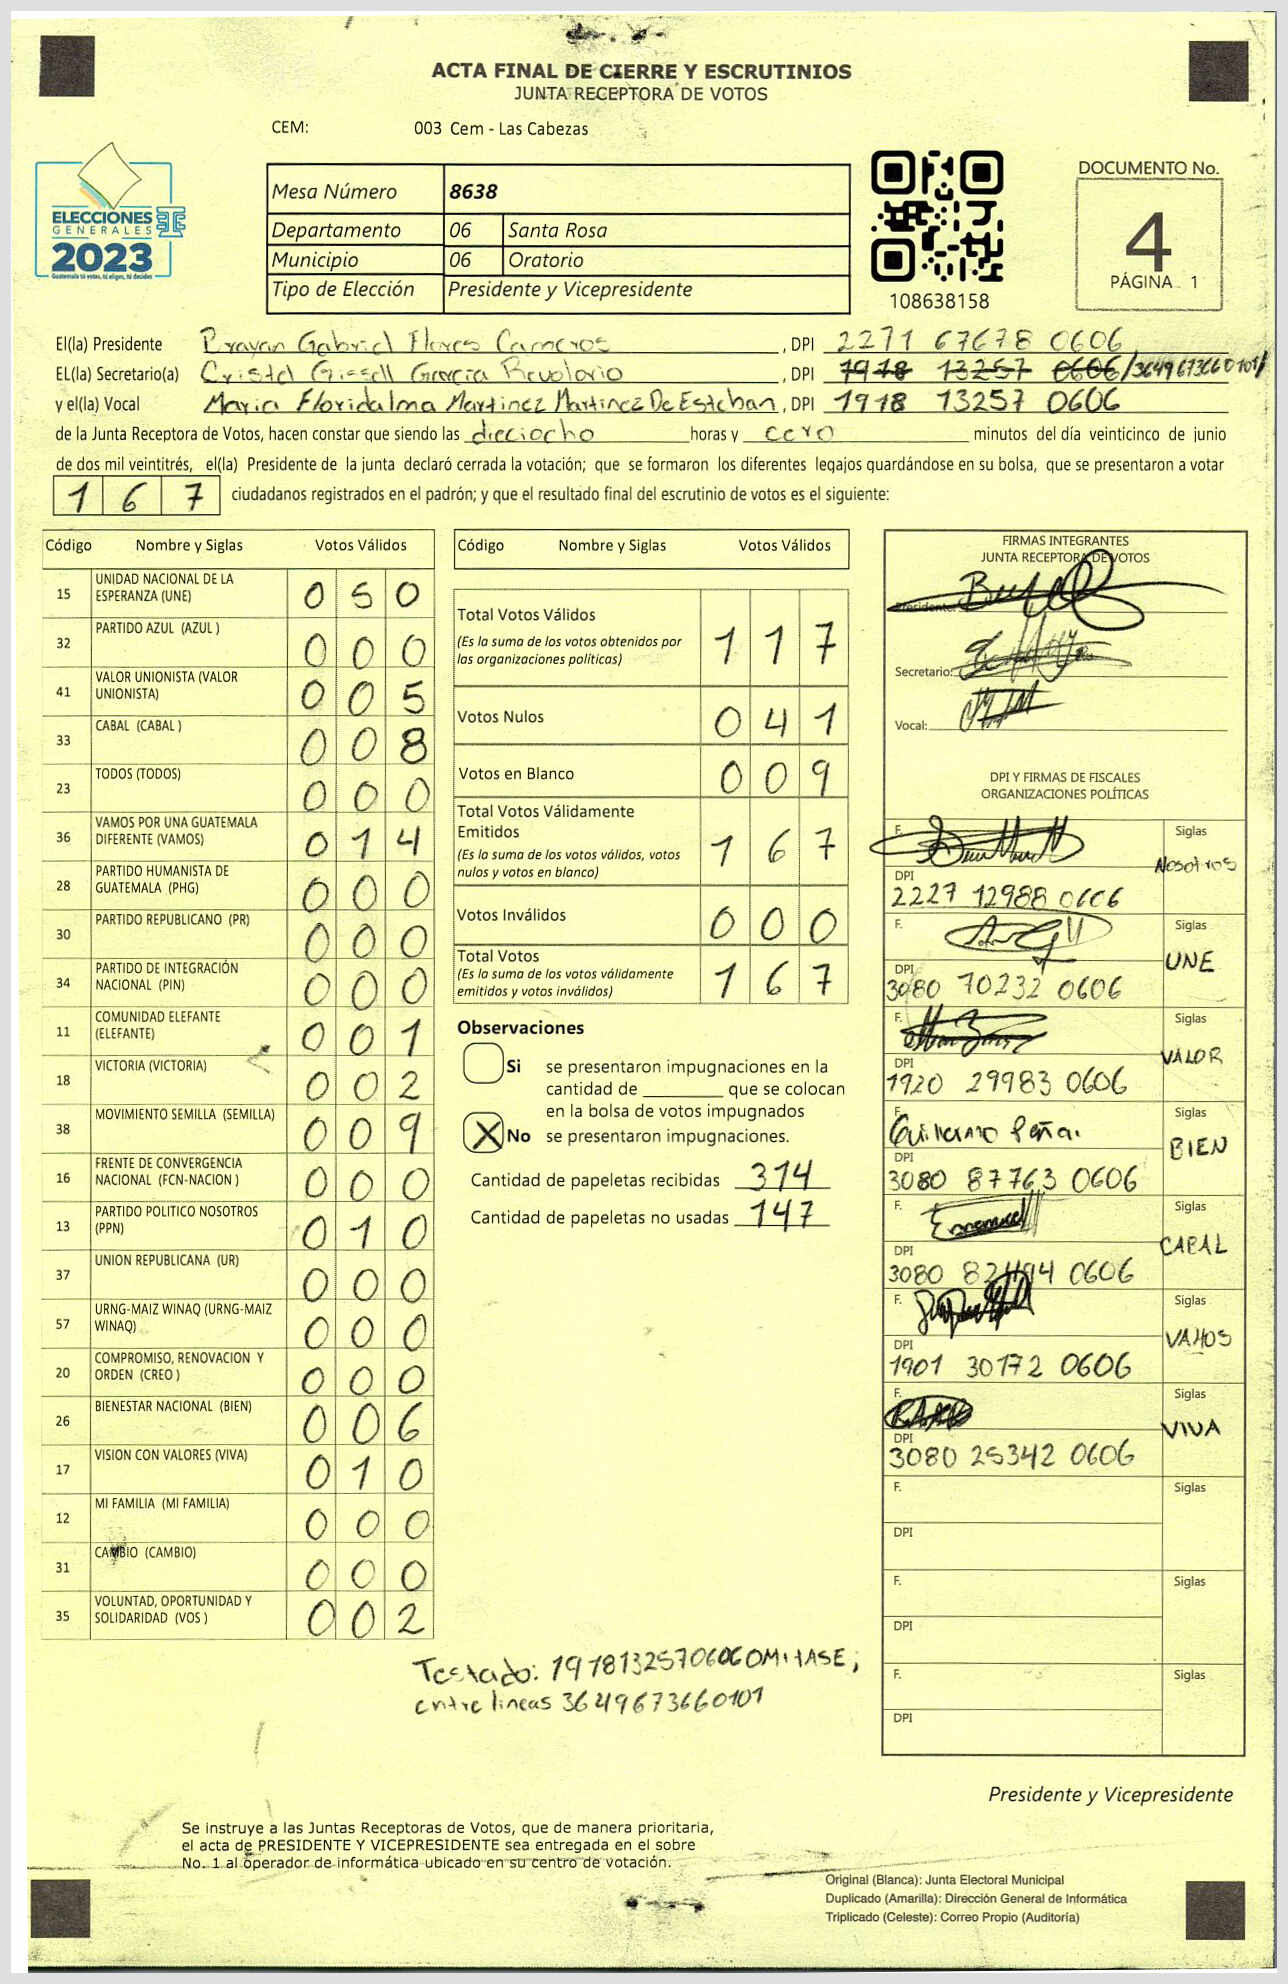 ACTA FINAL DE CIERRE Y ESCRUTINIOS
JUNTA RECEPTORA DE VOTOS
CEM: 003 Cem - Las Cabezas
ELECCIONES
GENERALES
2023
Guatemala tú votas, tú eliges, tú decides
Mesa Número 8638
Departamento 06 Santa Rosa
Municipio 06 Oratorio
Tipo de Elección Presidente y Vicepresidente
108638158
DOCUMENTO No.
4
PÁGINA 1
El(la) Presidente Brayan Gabriel Flores Carneros, DPI 2271 67678 0606
EL(la) Secretario(a) Cristel Gissell Garcia Revolorio, DPI 1978 13257 0606/3649673660101/
y el(la) Vocal Maria Floridalma Martinez Martinez De Esteban, DPI 1978 13257 0606
de la Junta Receptora de Votos, hacen constar que siendo las dieciocho horas y cero minutos del día veinticinco de junio
de dos mil veintitrés, el(la) Presidente de la junta declaró cerrada la votación; que se formaron los diferentes legajos guardándose en su bolsa, que se presentaron a votar
1 6 7 ciudadanos registrados en el padrón; y que el resultado final del escrutinio de votos es el siguiente:
Código Nombre y Siglas Votos Válidos
15 UNIDAD NACIONAL DE LA ESPERANZA (UNE) 0 5 0
32 PARTIDO AZUL (AZUL ) 0 0 0
41 VALOR UNIONISTA (VALOR UNIONISTA) 0 0 5
33 CABAL (CABAL ) 0 0 8
23 TODOS (TODOS) 0 0 0
36 VAMOS POR UNA GUATEMALA DIFERENTE (VAMOS) 0 1 4
28 PARTIDO HUMANISTA DE GUATEMALA (PHG) 0 0 0
30 PARTIDO REPUBLICANO (PR) 0 0 0
34 PARTIDO DE INTEGRACIÓN NACIONAL (PIN) 0 0 0
11 COMUNIDAD ELEFANTE (ELEFANTE) 0 0 1
18 VICTORIA (VICTORIA) 0 0 2
38 MOVIMIENTO SEMILLA (SEMILLA) 0 0 9
16 FRENTE DE CONVERGENCIA NACIONAL (FCN-NACION ) 0 0 0
13 PARTIDO POLITICO NOSOTROS (PPN) 0 1 0
37 UNION REPUBLICANA (UR) 0 0 0
57 URNG-MAIZ WINAQ (URNG-MAIZ WINAQ) 0 0 0
20 COMPROMISO, RENOVACION Y ORDEN (CREO ) 0 0 0
26 BIENESTAR NACIONAL (BIEN) 0 0 6
17 VISION CON VALORES (VIVA) 0 1 0
12 MI FAMILIA (MI FAMILIA) 0 0 0
31 CAMBIO (CAMBIO) 0 0 0
35 VOLUNTAD, OPORTUNIDAD Y SOLIDARIDAD (VOS ) 0 0 2
Código Nombre y Siglas Votos Válidos
Total Votos Válidos 1 1 7
(Es la suma de los votos obtenidos por
las organizaciones políticas)
Votos Nulos 0 4 1
Votos en Blanco 0 0 9
Total Votos Válidamente
Emitidos 1 6 7
(Es la suma de los votos válidos, votos
nulos y votos en blanco)
Votos Inválidos 0 0 0
Total Votos 1 6 7
(Es la suma de los votos válidamente
emitidos y votos inválidos)
Observaciones
Si se presentaron impugnaciones en la
cantidad de ________ que se colocan
en la bolsa de votos impugnados
X No se presentaron impugnaciones.
Cantidad de papeletas recibidas 314
Cantidad de papeletas no usadas 147
FIRMAS INTEGRANTES
JUNTA RECEPTORA DE VOTOS
Presidente:
Secretario:
Vocal:
DPI Y FIRMAS DE FISCALES
ORGANIZACIONES POLÍTICAS
F. Siglas
Nosotros
DPI
2227 12988 0606
F. Siglas
UNE
DPI
3080 70232 0606
F. Siglas
VALOR
DPI
1920 29983 0606
F. Siglas
Guillermo Peña. BIEN
DPI
3080 87763 0606
F. Siglas
Emanuel CABAL
DPI
3080 82494 0606
F. Siglas
VAMOS
DPI
1901 30172 0606
F. Siglas
VIVA
DPI
3080 25342 0606
F. Siglas
DPI
F. Siglas
DPI
F. Siglas
DPI
Testado: 1978132570606 OMITASE;
entre lineas 3649673660101
Presidente y Vicepresidente
Se instruye a las Juntas Receptoras de Votos, que de manera prioritaria,
el acta de PRESIDENTE Y VICEPRESIDENTE sea entregada en el sobre
No. 1 al operador de informática ubicado en su centro de votación.
Original (Blanca): Junta Electoral Municipal
Duplicado (Amarilla): Dirección General de Informática
Triplicado (Celeste): Correo Propio (Auditoría)